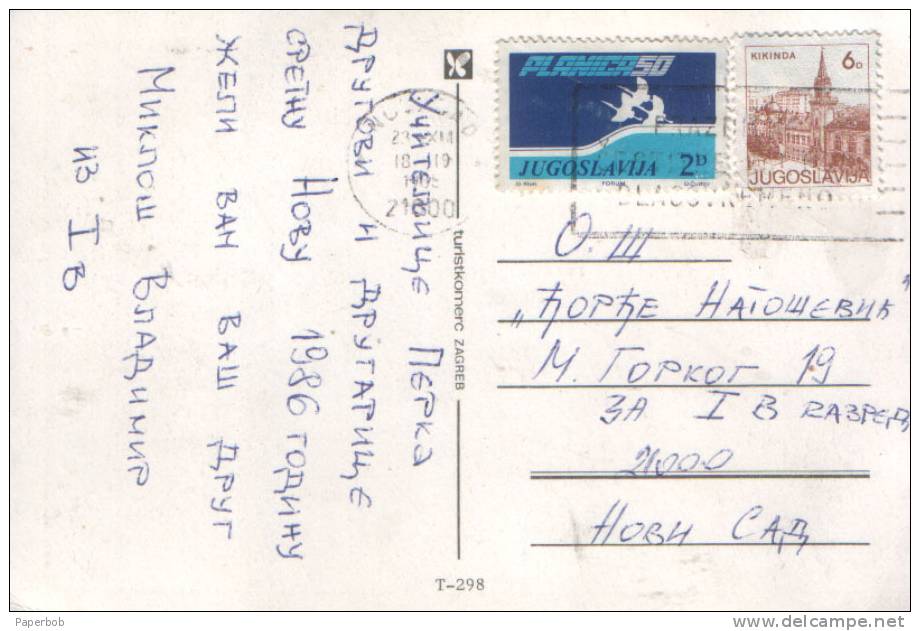 Учитељице Перка
другови и другарице
сретну Нову 1986 годину
жели вам ваш друг
Миклош Владимир
из I в
PLANICA 50
JUGOSLAVIJA 2D
FORUM
KIKINDA 6D
JUGOSLAVIJA
21000
turistkomerc ZAGREB
О.Ш
„Ђорђе Натошевић"
М. Горког 19
за I в разред
21000
Нови Сад
T-298
Paperbob
delcampe.net